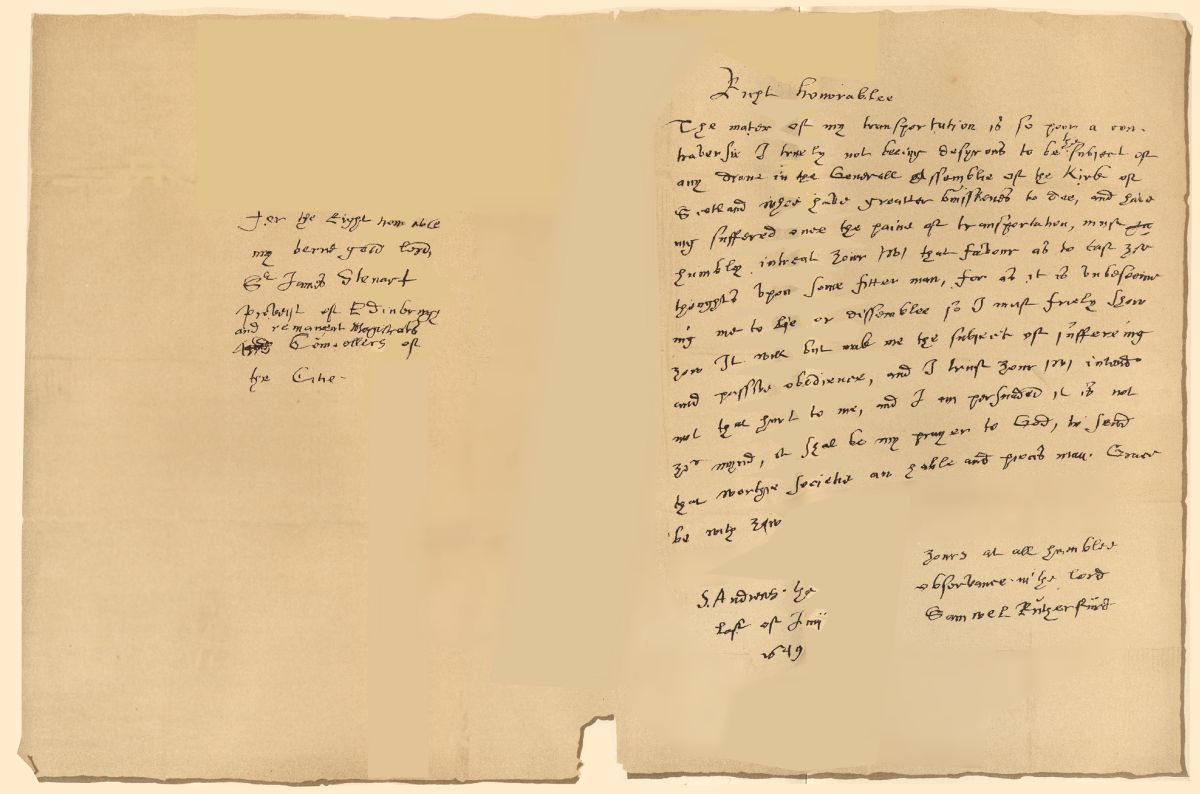 For the Right honorable
my verie good lord,
Sr James Stewart
provest of Edinbrugh
and remanent Magistrats
Counsellers of
the Citie.
Right honorablee
The mater of my transportation is so poor a con-
traversie I truely not being desyrous to be the subject of
any dinne in the Generall Assemblie of the Kirk of
Scotland whoe have greatter bussines to doe, and have
ing suffered once the paine of transportation, must
humbly intreat zour that favour as to cast zor
thoughts upon some fitter man, for as it is unbeseeme
ing me to lie or dissemblee so I must friely show
zow It will but mak me the subject of suffereing
and passive obedience, and I trust zour intend
not that hurt to me, and I am persuaded it is not
zor mynd, it shal be my prayer to God, to send
that worthie societie an hable and pious man. Grace
be with zow
Zours at all humblee
observance in the Lord
Samuel Rutherfurd
S. Andrews the
last of Junij
1649